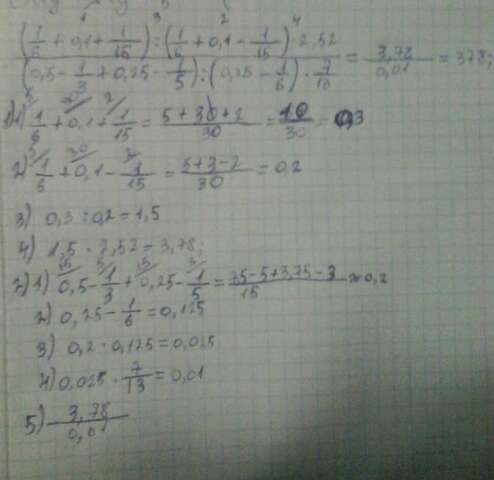 (1/6 + 0,1 + 1/15) : (1/6 + 0,1 - 1/15) · 2,52
(0,5 - 1/3 + 0,25 - 1/5) : (0,25 - 1/6) · 7/13 = 3,78/0,01 = 378;
1) 1/6 + 0,1 + 1/15 = 5+3+2/30 = 10/30 = 0,3
2) 1/6 + 0,1 - 1/15 = 5+3-2/30 = 0,2
3) 0,3 : 0,2 = 1,5
4) 1,5 · 2,52 = 3,78;
2) 1) 0,5 - 1/3 + 0,25 - 1/5 = 7,5-5+3,75-3/15 ≈ 0,2
2) 0,25 - 1/6 = 0,125
3) 0,2 · 0,125 = 0,025
4) 0,025 · 7/13 = 0,01
5) 3,78/0,01